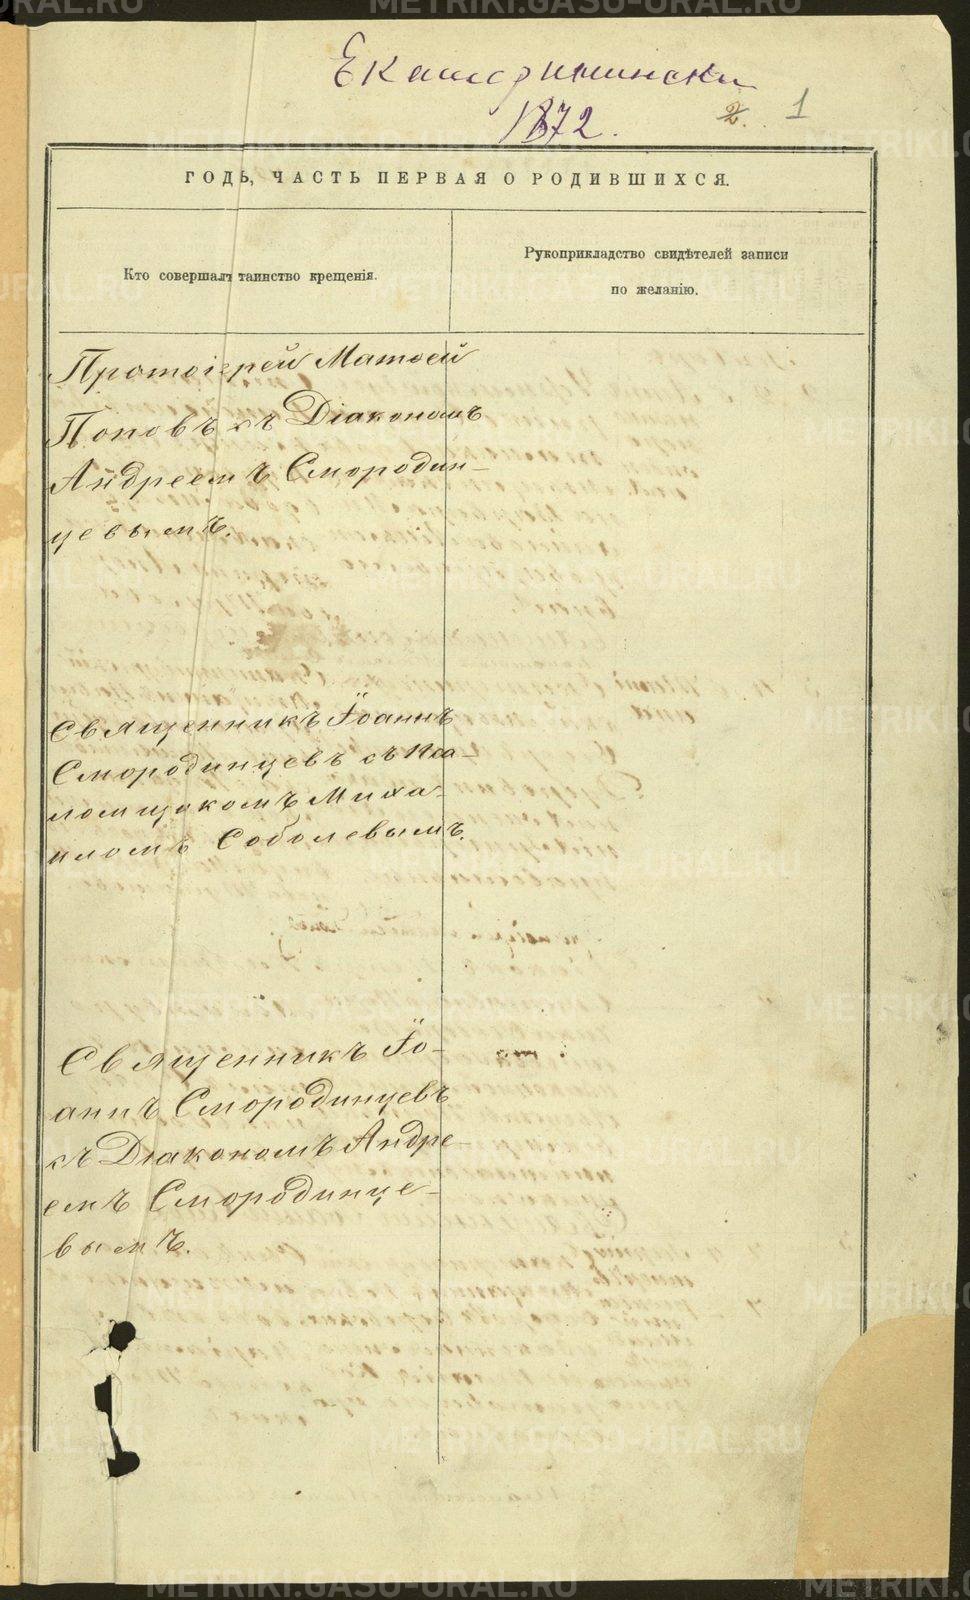 Екатеринински
1872.
2. 1
ГОДЪ, ЧАСТЬ ПЕРВАЯ О РОДИВШИХСЯ.
Кто совершалъ таинство крещенія.
Рукоприкладство свидѣтелей записи
по желанію.
Протоіерей Матѳей
Поповъ съ Діакономъ
Андреемъ Смородин-
цевымъ.
Священникъ Іоаннъ
Смородинцевъ съ Пса-
ломщикомъ Миха-
иломъ Соболевымъ.
Священникъ Іо-
аннъ Смородинцевъ
съ Діакономъ Андре-
емъ Смородинце-
вымъ.
METRIKI.GASO-URAL.RU